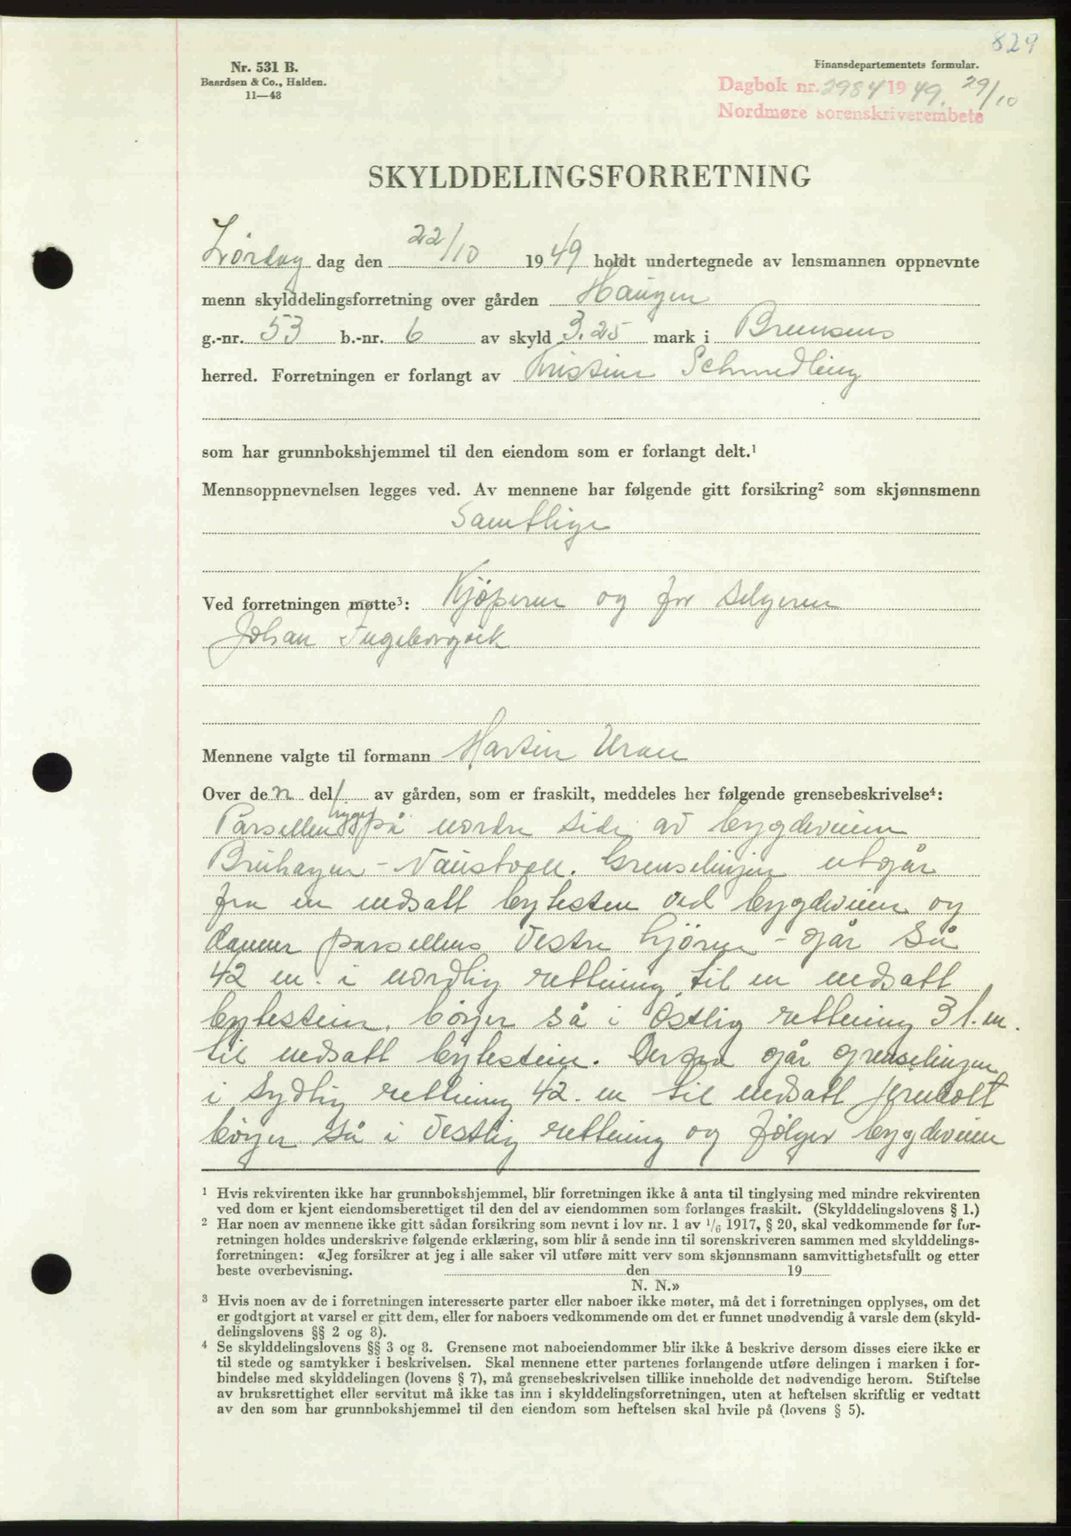 829
Nr. 531 B.
Baardsen & Co., Halden.
11—48
Finansdepartementets formular.
Dagbok nr. 2984 1949. 29/10
Nordmøre sorenskriverembete
SKYLDDELINGSFORRETNING
Lørdag dag den 22/10 1949 holdt undertegnede av lensmannen oppnevnte
menn skylddelingsforretning over gården Haugen
g.-nr. 53 b.-nr. 6 av skyld 3.25 mark i Bremsnes
herred. Forretningen er forlangt av Kristine Schmedling
som har grunnbokshjemmel til den eiendom som er forlangt delt.¹
Mennsoppnevnelsen legges ved. Av mennene har følgende gitt forsikring² som skjønnsmenn
Samtlige
Ved forretningen møtte³: Kjøperen og for selgeren
Johan Ingeborgvik
Mennene valgte til formann Martin Uran
Over den del/ av gården, som er fraskilt, meddeles her følgende grensebeskrivelse⁴:
Parsellen ligger på nordre side av bygdeveien
Bruhagen - Naustvoll. Grenselinjen utgår
fra en nedsatt bytesten ved bygdeveien og
danner parsellens Vestre hjørne - går så
42 m. i nordlig rettning til en nedsatt
bytestein, bøyer så i Østlig rettning 31. m.
til nedsatt bytestein. Derfra går grenselinjen
i Sydlig rettning 42. m til nedsatt Jernbolt
bøyer så i Vestlig rettning og følger bygdeveien
¹ Hvis rekvirenten ikke har grunnbokshjemmel, blir forretningen ikke å anta til tinglysing med mindre rekvirenten
ved dom er kjent eiendomsberettiget til den del av eiendommen som forlanges fraskilt. (Skylddelingslovens § 1.)
² Har noen av mennene ikke gitt sådan forsikring som nevnt i lov nr. 1 av 1/6 1917, § 20, skal vedkommende før for-
retningen holdes underskrive følgende erklæring, som blir å sende inn til sorenskriveren sammen med skylddelings-
forretningen: «Jeg forsikrer at jeg i alle saker vil utføre mitt verv som skjønnsmann samvittighetsfullt og etter
beste overbevisning. den 19
N. N.»
³ Hvis noen av de i forretningen interesserte parter eller naboer ikke møter, må det i forretningen opplyses, om det
er godtgjort at varsel er gitt dem, eller for naboers vedkommende om det er funnet unødvendig å varsle dem (skyld-
delingslovens §§ 2 og 3).
⁴ Se skylddelingslovens §§ 3 og 8. Grensene mot naboeiendommer blir ikke å beskrive dersom disses eiere ikke er
til stede og samtykker i beskrivelsen. Skal mennene etter partenes forlangende utføre delingen i marken i for-
bindelse med skylddelingen (lovens § 7), må grensebeskrivelsen tillike inneholde det nødvendige herom. Stiftelse
av bruksrettighet eller servitut må ikke tas inn i skylddelingsforretningen, uten at heftelsen skriftlig er vedtatt
av den som har grunnbokshjemmel til den eiendom som heftelsen skal hvile på (lovens § 5).